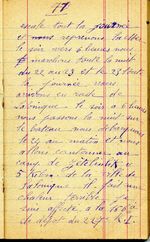 17
escale tout la journée
et nous reprenons la
le soir vers 6 heures nous
marchons toute la nuit
du 22 au 23 et le 23 toute
la journée nous
arrivons en rade de
Salonique le soir a 6 heures
nous passons la nuit sur
le bateau nous debarquons
le 24 au matin et nous
allons cantonner au
camp de Zeitenlick a
5 kilom de la ville de
Salonique il fait un
chaleur terrible
suis affecté a la
de dépôt du 2